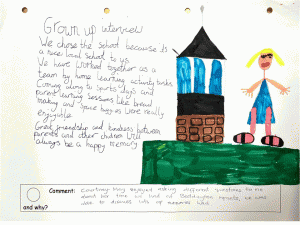 Grown up interview
We chose the school because its
a nice local school to us
We have worked together as a
team by home learning activity tasks
Coming along to sports days and
Parent learning sessions like bread
making and have buggies were really
enjoyable
Great friendship and kindness between
parents and other children will
always be a happy memory
Comment:
enjoyed asking different questions to me
about her time we had at
we were
able to discuss lots of memories
and why?